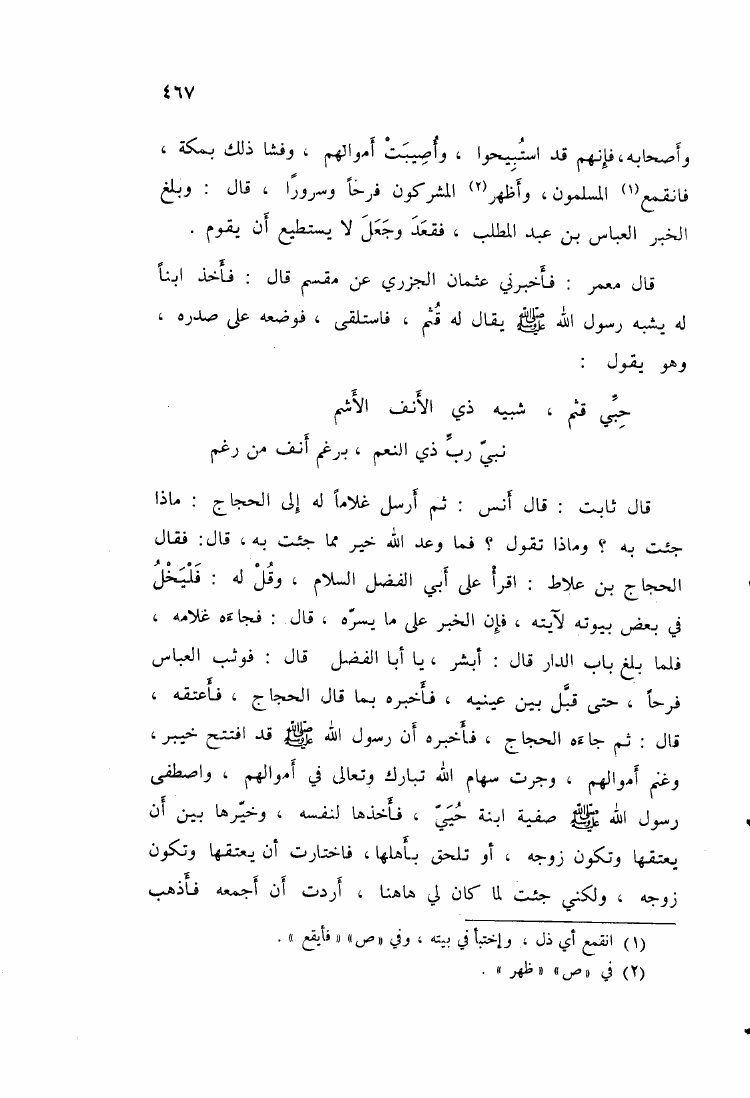 ٤٦٧
وأصحابه، فإنهم قد استُبِيحوا ، وأُصِيبَتْ أموالهم ، وفشا ذلك بمكة ،
فانقمع(١) المسلمون، وأظهر(٢) المشركون فرحاً وسرورًا ، قال : وبلغ
الخبر العباس بن عبد المطلب ، فقعَدَ وجَعَلَ لا يستطيع أن يقوم .
قال معمر : فأخبرني عثمان الجزري عن مقسم قال : فأخذ ابناً
له يشبه رسول الله ﷺ يقال له قُثم ، فاستلقى ، فوضعه على صدره ،
وهو يقول :
حِبِّي قثم ، شبيه ذي الأنف الأشم
نبيّ ربِّ ذي النعم ، برغم أنف من رغم
قال ثابت : قال أنس : ثم أرسل غلاماً له إلى الحجاج : ماذا
جئت به ؟ وماذا تقول ؟ فما وعد الله خير مما جئت به ، قال: فقال
الحجاج بن علاط : اقرأْ على أبي الفضل السلام ، وقُلْ له : فَلْيَخْلُ
في بعض بيوته لآيته ، فإن الخبر على ما يسرّه ، قال : فجاءه غلامه ،
فلما بلغ باب الدار قال : أبشر ، يا أبا الفضل قال : فوثب العباس
فرحاً ، حتى قبَّل بين عينيه ، فأخبره بما قال الحجاج ، فأعتقه ،
قال : ثم جاءه الحجاج ، فأخبره أن رسول الله ﷺ قد افتتح خيبر ،
وغنم أموالهم ، وجرت سهام الله تبارك وتعالى في أموالهم ، واصطفى
رسول الله ﷺ صفية ابنة حُيَيّ ، فأخذها لنفسه ، وخيّرها بين أن
يعتقها وتكون زوجه ، أو تلحق بأهلها، فاختارت أن يعتقها وتكون
زوجه ، ولكني جئت لما كان لي هاهنا ، أردت أن أجمعه فأذهب
(١) انقمع أي ذل ، وإختبأ في بيته ، وفي «ص» « فأيقع » .
(٢) في «ص» « ظهر » .